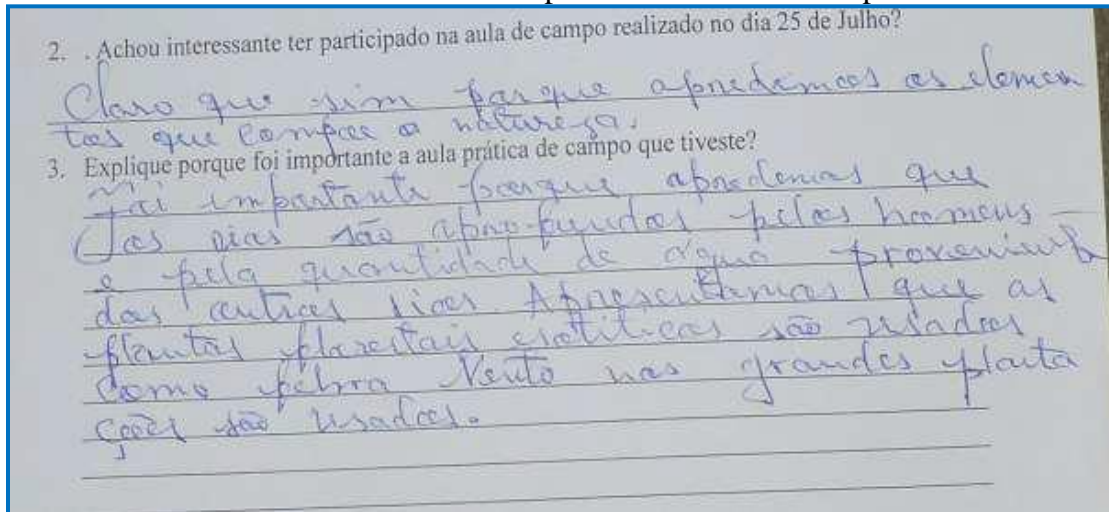 2. . Achou interessante ter participado na aula de campo realizado no dia 25 de Julho?
Claro que sim porque apredemos os elemen
tos que compõe a natureza.
3. Explique porque foi importante a aula prática de campo que tiveste?
Foi importante porque apredemos que
os rios são aprofundos pelos homens
e pela quantidade de água proveniente
das outros rios. Apresentamos que as
plantas florestais são usados
como Vento nas grandes planta
ções são usados.